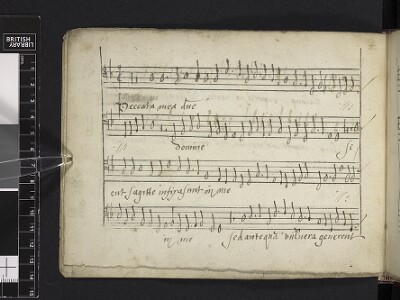 BRITISH
LIBRARY
Peccata mea due
Domine Si
cut sagitte infixa sunt in me
in me sed antequā vulnera generent